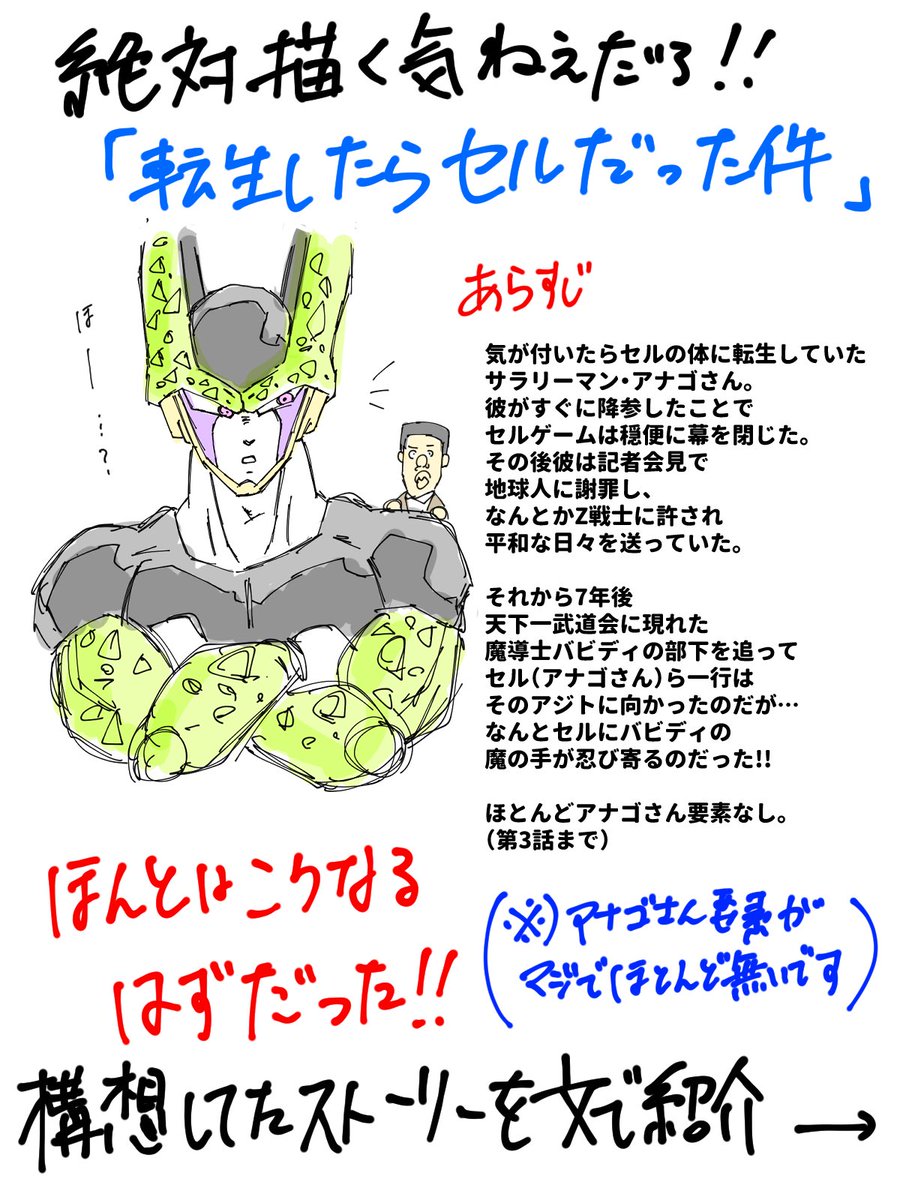 絶対描く気ねえだろ!!
「転生したらセルだった件」
あらすじ
ほー…?
気が付いたらセルの体に転生していた
サラリーマン・アナゴさん。
彼がすぐに降参したことで
セルゲームは穏便に幕を閉じた。
その後彼は記者会見で
地球人に謝罪し、
なんとかZ戦士に許され
平和な日々を送っていた。
それから7年後
天下一武道会に現れた
魔導士バビディの部下を追って
セル(アナゴさん)ら一行は
そのアジトに向かったのだが…
なんとセルにバビディの
魔の手が忍び寄るのだった!!
ほとんどアナゴさん要素なし。
(第3話まで)
ほんとはこうなる
はずだった!!
(※)アナゴさん要素が
マジでほとんど無いです)
構想してたストーリーを文で紹介→